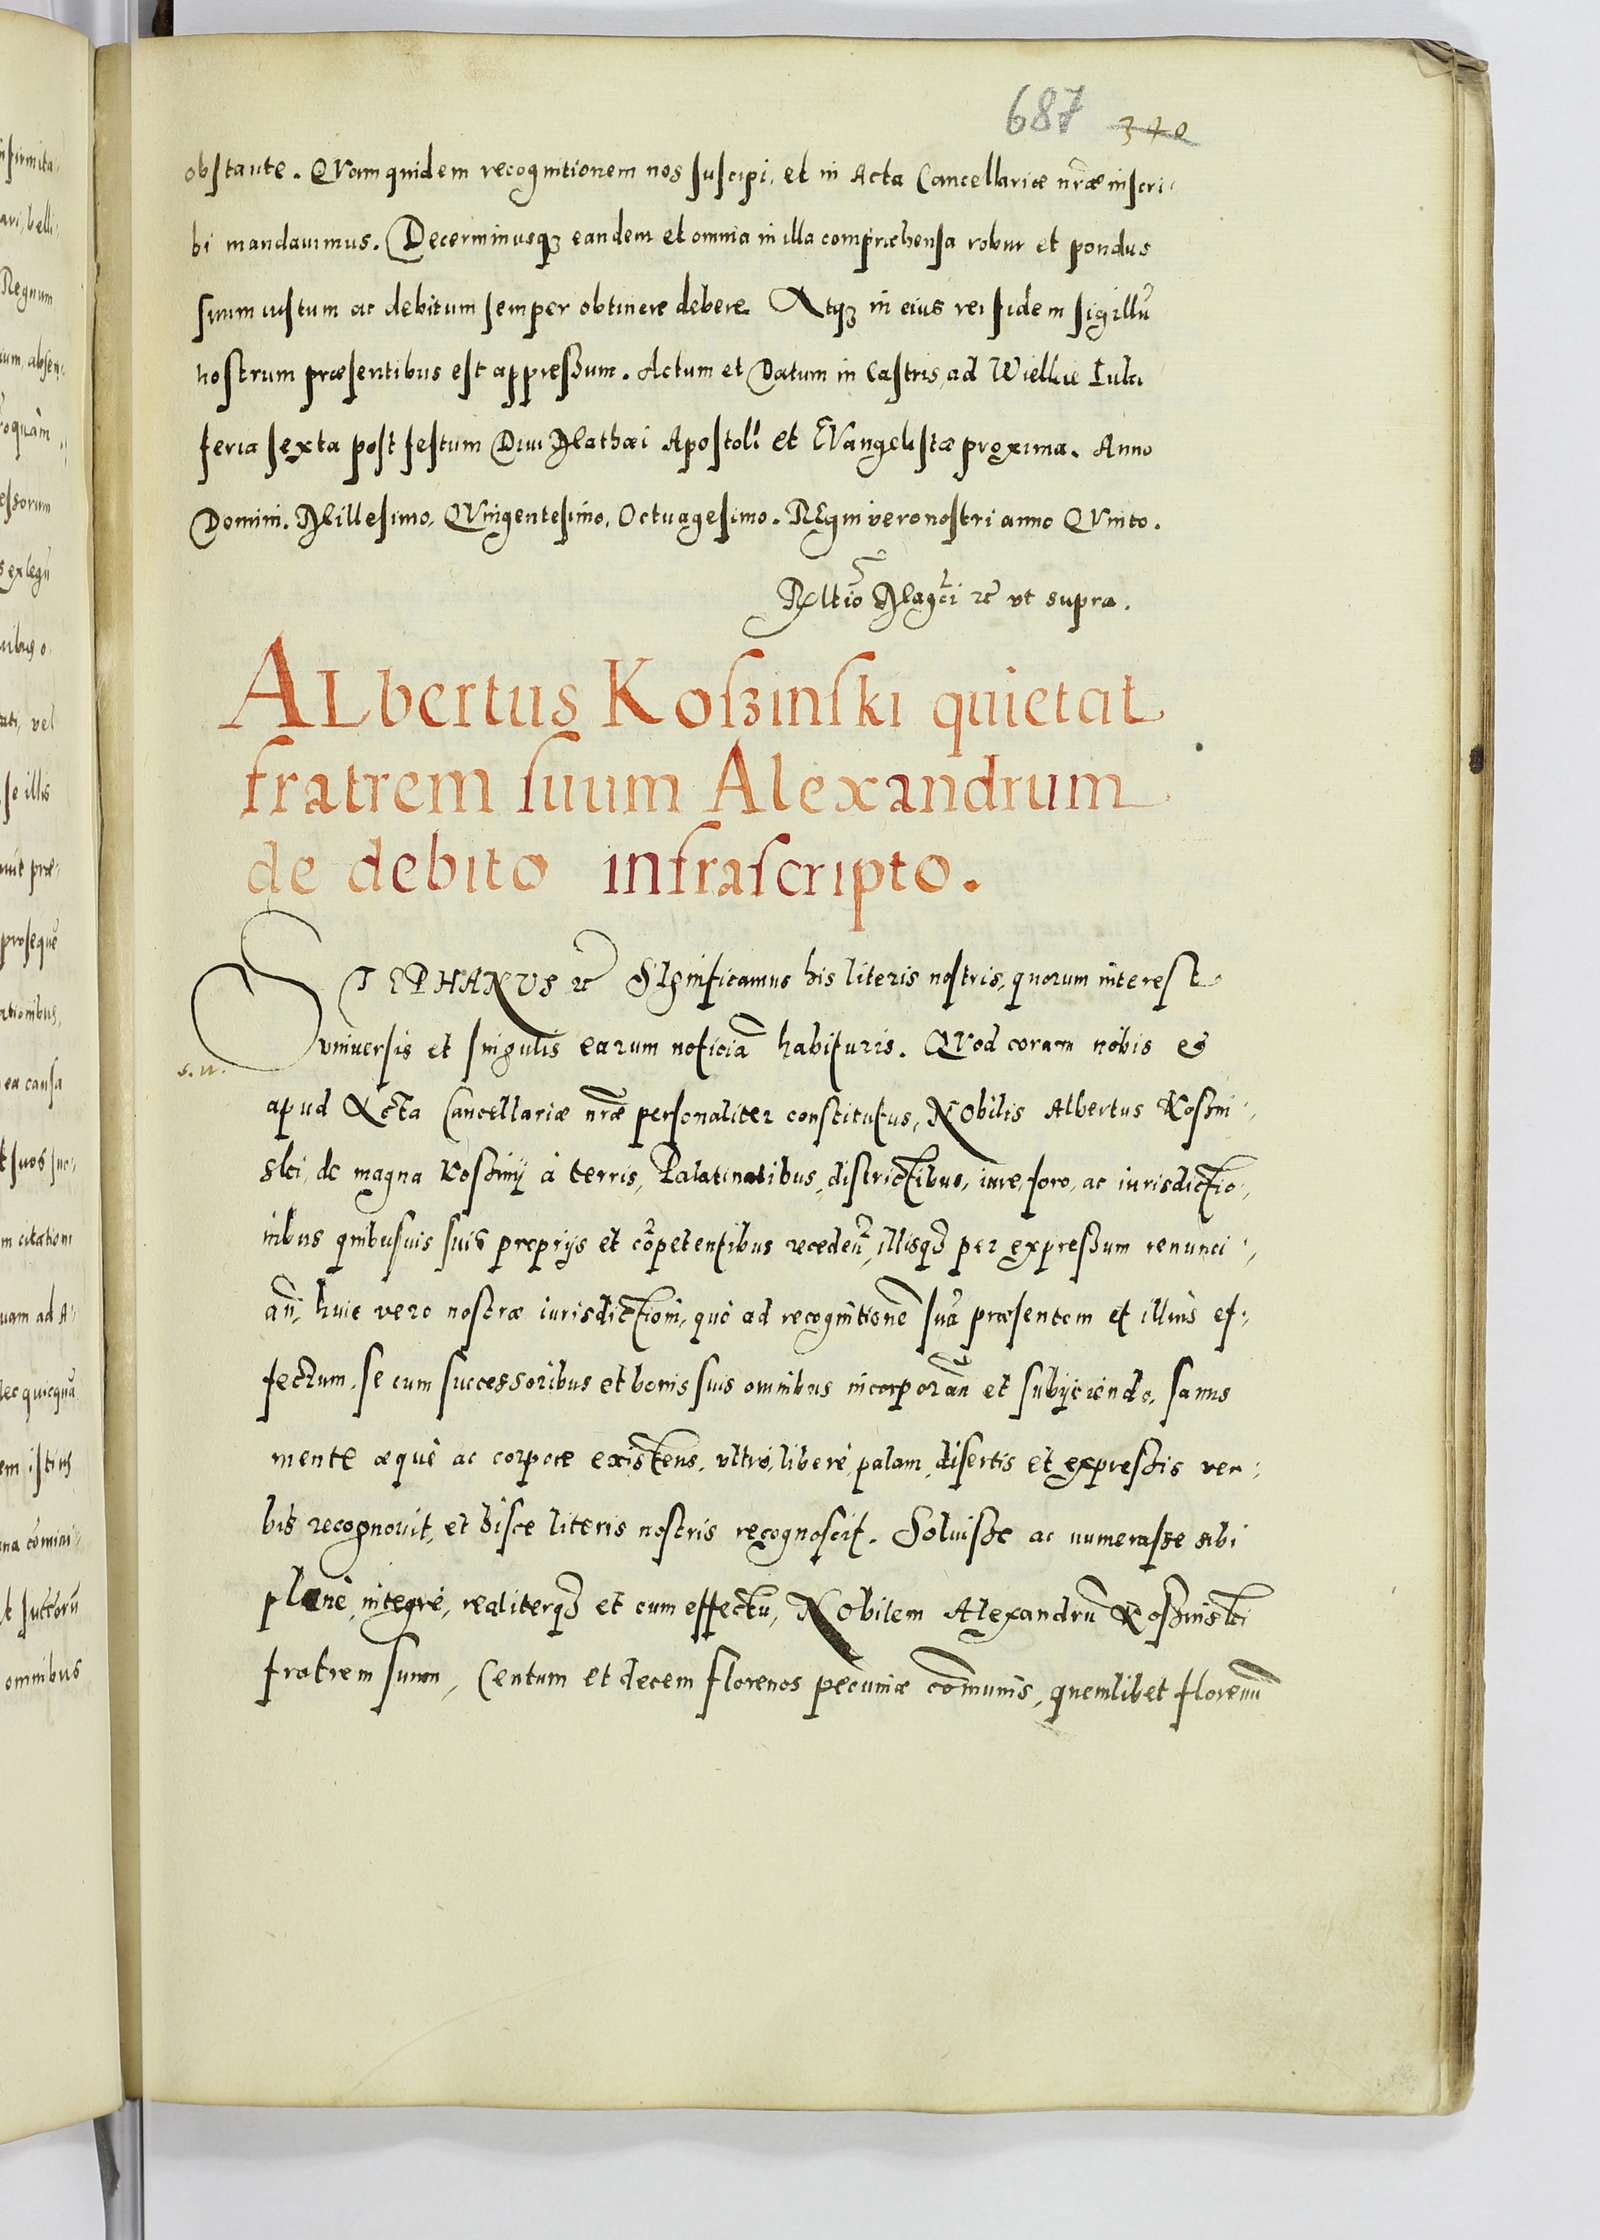 687 340
obstante. QVam quidem recognitionem nos suscipi, et in Acta Cancellariæ nr̃æ inscri
bi mandauimus. Decerminusqꝫ eandem et omnia in illa comprehensa robur et pondus
suum iustum ac debitum semper obtinere debere. Atqꝫ in eius rei fidem sigillũ
nostrum præsentibus est appressum. Actum et Datum in Castris, ad Wielkie Luki
feria sexta post festum Diui Mathæi Apostoli et EVangelistæ proxima. Anno
Domini. Millesimo, QVingentesimo, Octuagesimo. REgni vero nostri anno QVinto.
Rltio Magci ꝛc vt supra.
ALbertus Koszinski quietat
fratrem suum Alexandrum
de debito infrascripto.
STEPHANVS ꝛc SIgnificamus his literis nostris, quorum interest
vniuersis et singulis earum noticiã habituris. QVod coram nobis et
s. n.
apud Acta Cancellariæ nr̃æ personaliter constitutus, NObilis Albertus Koszin
ski, de magna Kosziny à terris, Palatinatibus, districtibus, iure, foro, ac iurisdictio
nibus quibusuis suis proprijs et cõpetentibus receden̄, illisqꝫ per expressum renunci
an̄, huic vero nostræ iurisdictioni, quò ad recognitionẽ suã præsentem et illius ef
fectum, se cum successoribus et bonis suis omnibus incorporan̄ et subijciendo, sanus
mente æquè ac corpore existens, vltrò, liberè, palam, disertis et expressis ver
bis recognouit, et hisce literis nostris recognoscit. Soluisse ac numerasse sibi
planè, integrè, realiterqꝫ et cum effectu, NObilem Alexandrũ Koszinski
fratrem suum, Centum et decem florenos pecuniæ com̃unis, quemlibet florenũ